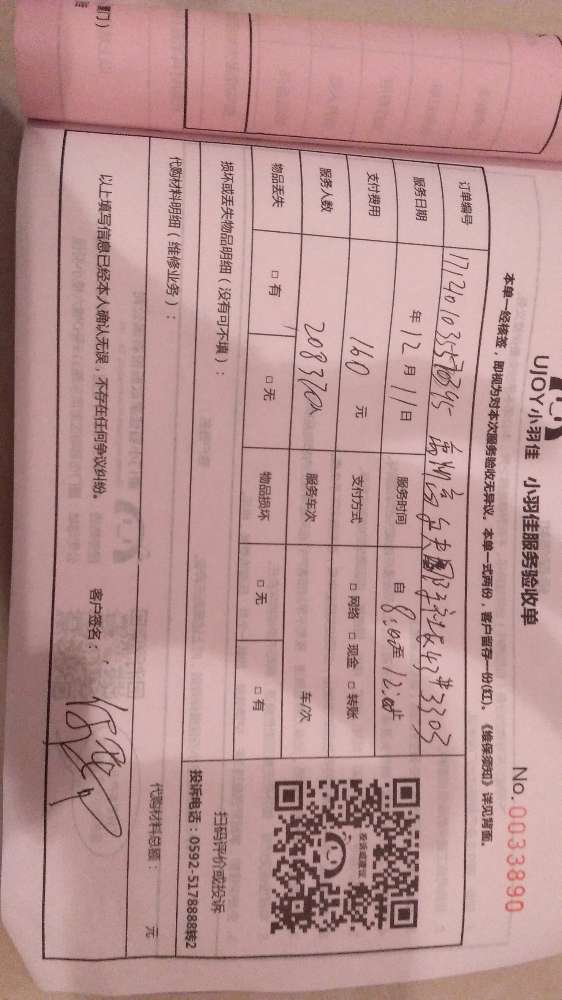 UJOY小羽佳 小羽佳服务验收单
No. 0033890
本单一经核签，即视为对本次服务验收无异议。本单一式两份，客户留存一份(红)。《维保须知》详见背面。
订单编号
服务日期 年 12 月 11 日 服务时间 自 8:00 至 12:00 止
支付费用 160 元 支付方式 □ 网络 □ 现金 □ 转账
服务人数 服务车次 车/次
物品丢失 □ 有 □ 无 物品损坏 □ 无 □ 有
损坏或丢失物品明细（没有可不填）：
扫码评价或投诉
投诉电话：0592-5178888转2
代购材料明细（维修业务）：
代购材料总额： 元
以上填写信息已经本人确认无误，不存在任何争议纠纷。 客户签名：